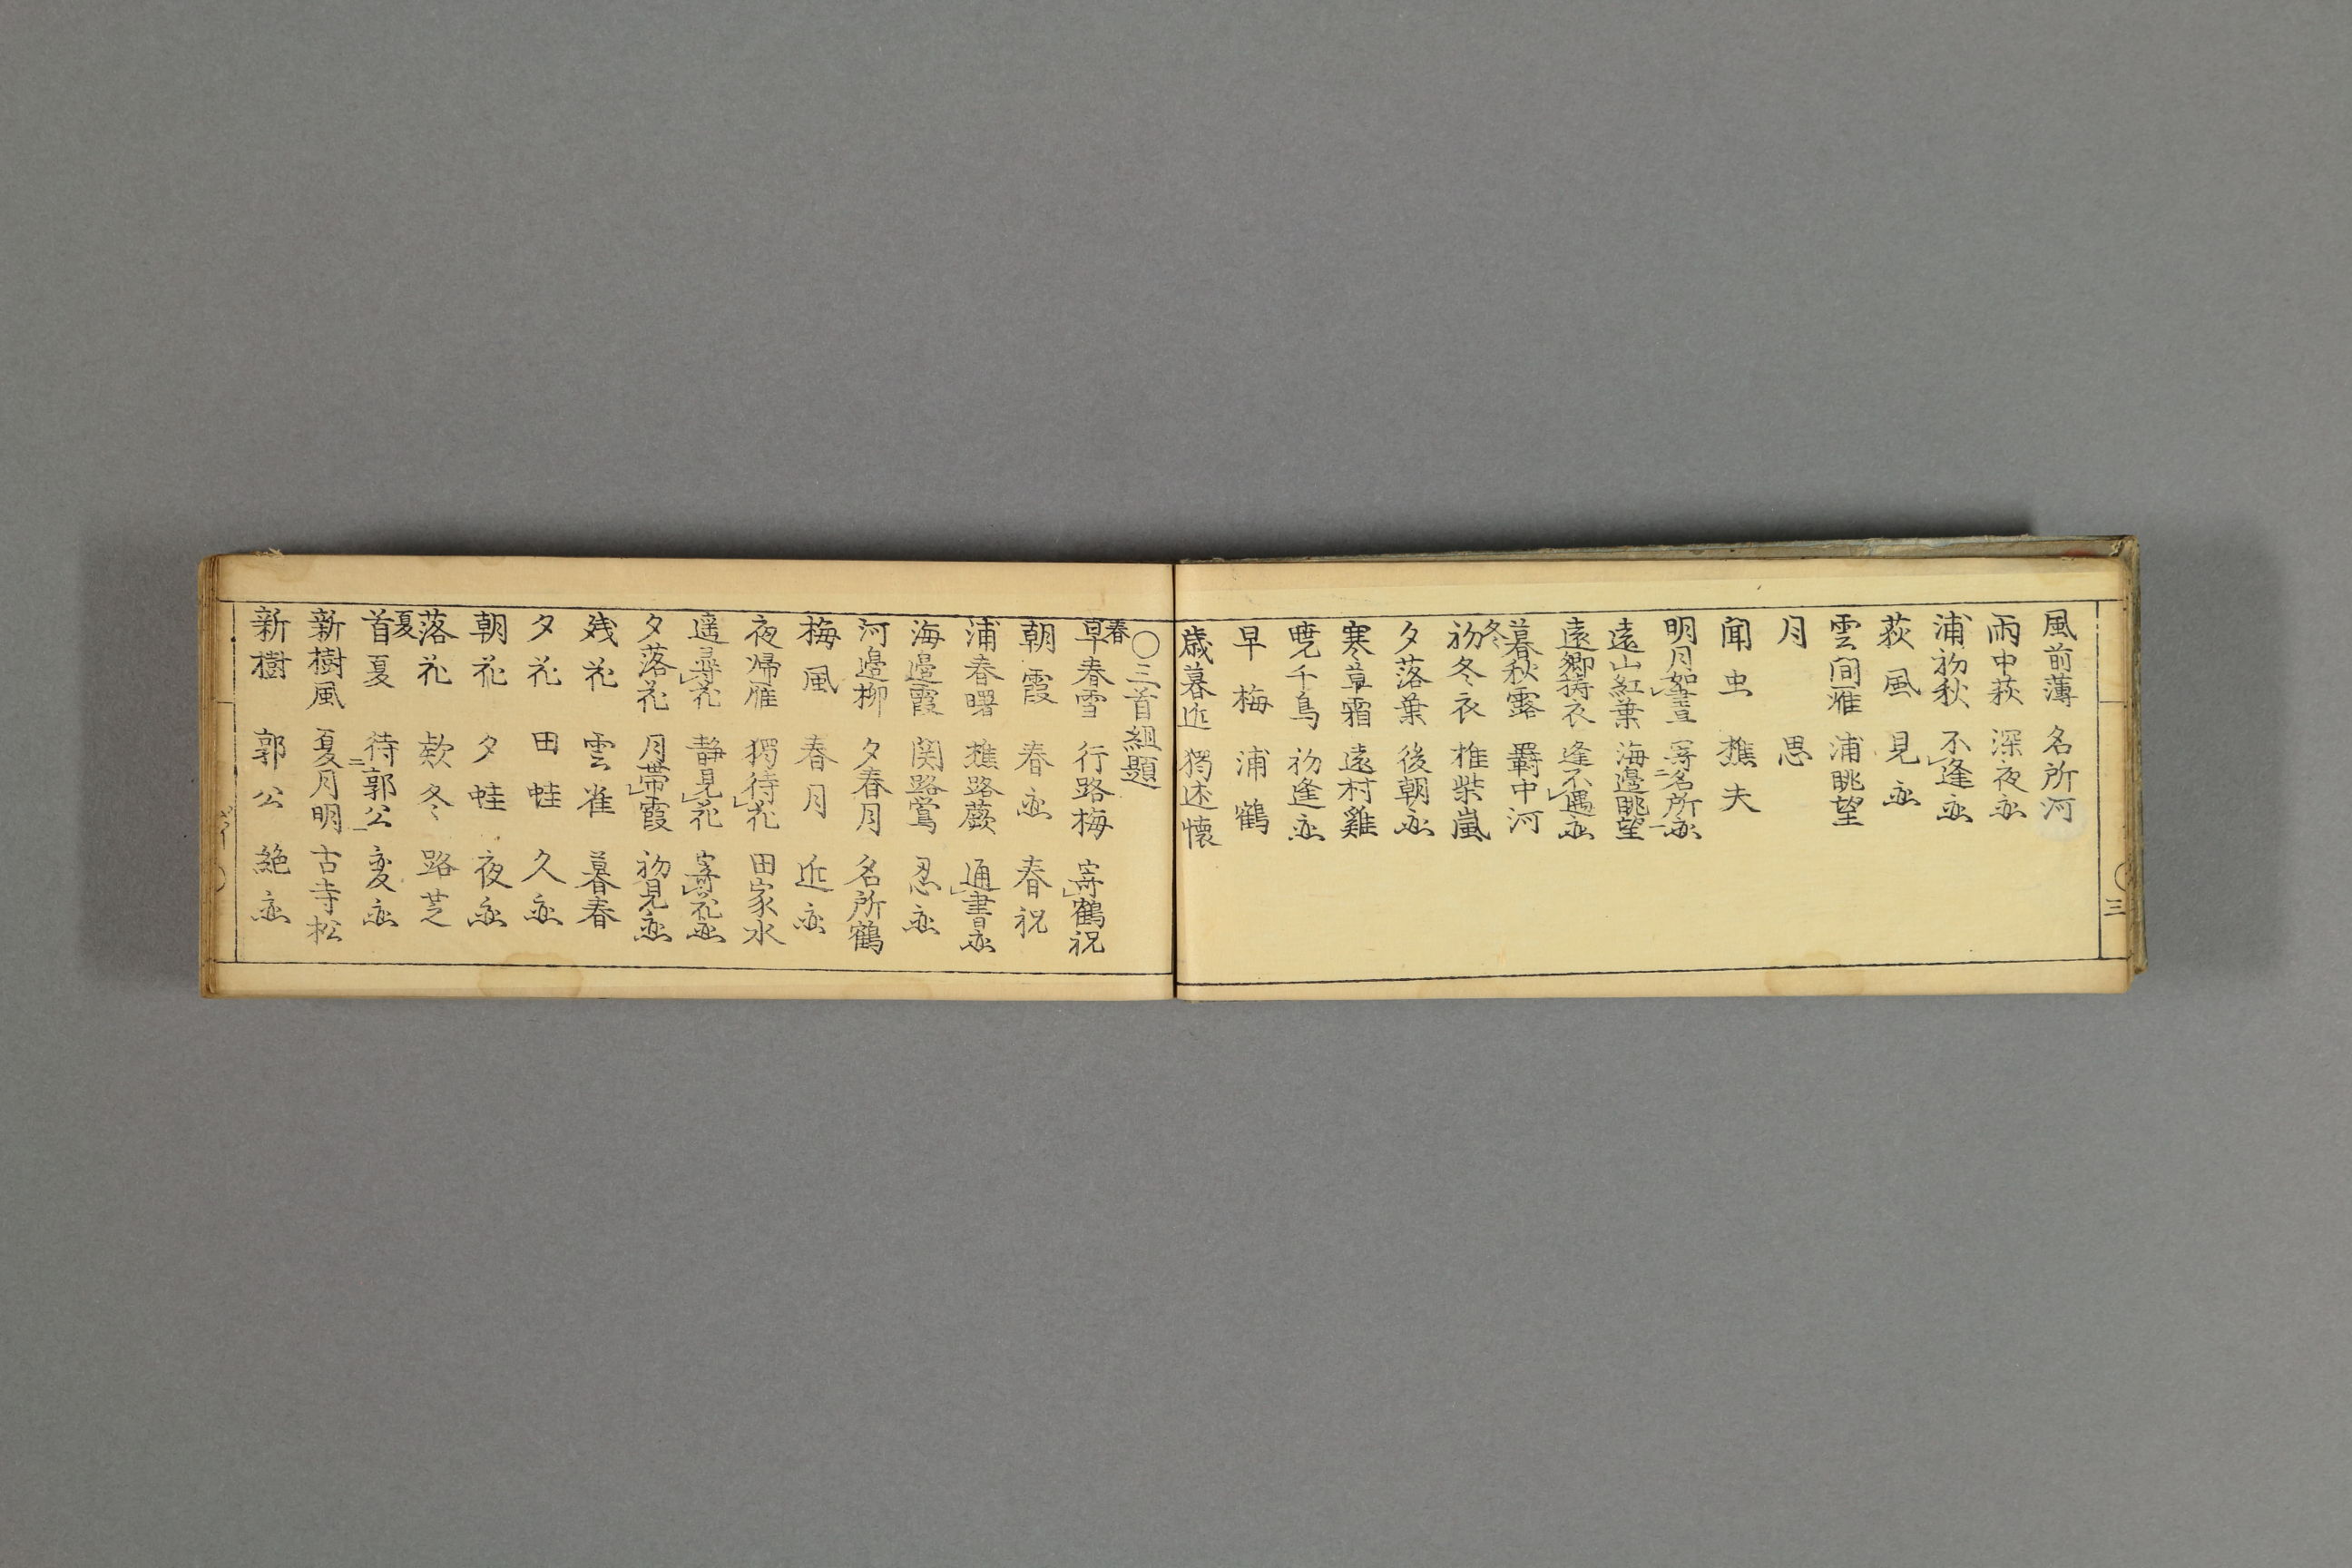 風前薄 名所河
雨中萩 深夜恋
浦初秋 不逢恋
荻風 見恋
雲間雁 浦眺望
月 思
聞虫 樵夫
明月如晝 寄名所恋
遠山紅葉 海邉眺望
遠郷擣衣 逢不遇恋
暮秋露 羇中河
冬
初冬衣 椎柴嵐
夕落葉 後朝恋
寒草霜 遠村雞
暁千鳥 初逢恋
早梅 浦鶴
歳暮近 獨述懐
三
〇三首組題
春
早春雪 行路梅 寄鶴祝
朝霞 春恋 春祝
浦春曙 樵路蕨 通書恋
海邉霞 関路鶯 忍恋
河邉柳 夕春月 名所鶴
梅風 春月 近恋
夜帰雁 獨待花 田家水
遥尋花 静見花 寄花恋
夕落花 月帯霞 初見恋
残花 雲雀 暮春
夕花 田蛙 久恋
朝花 夕蛙 夜恋
落花 欵冬 路芝
夏
首夏 待郭公 変恋
新樹風 夏月明 古寺松
新樹 郭公 絶恋